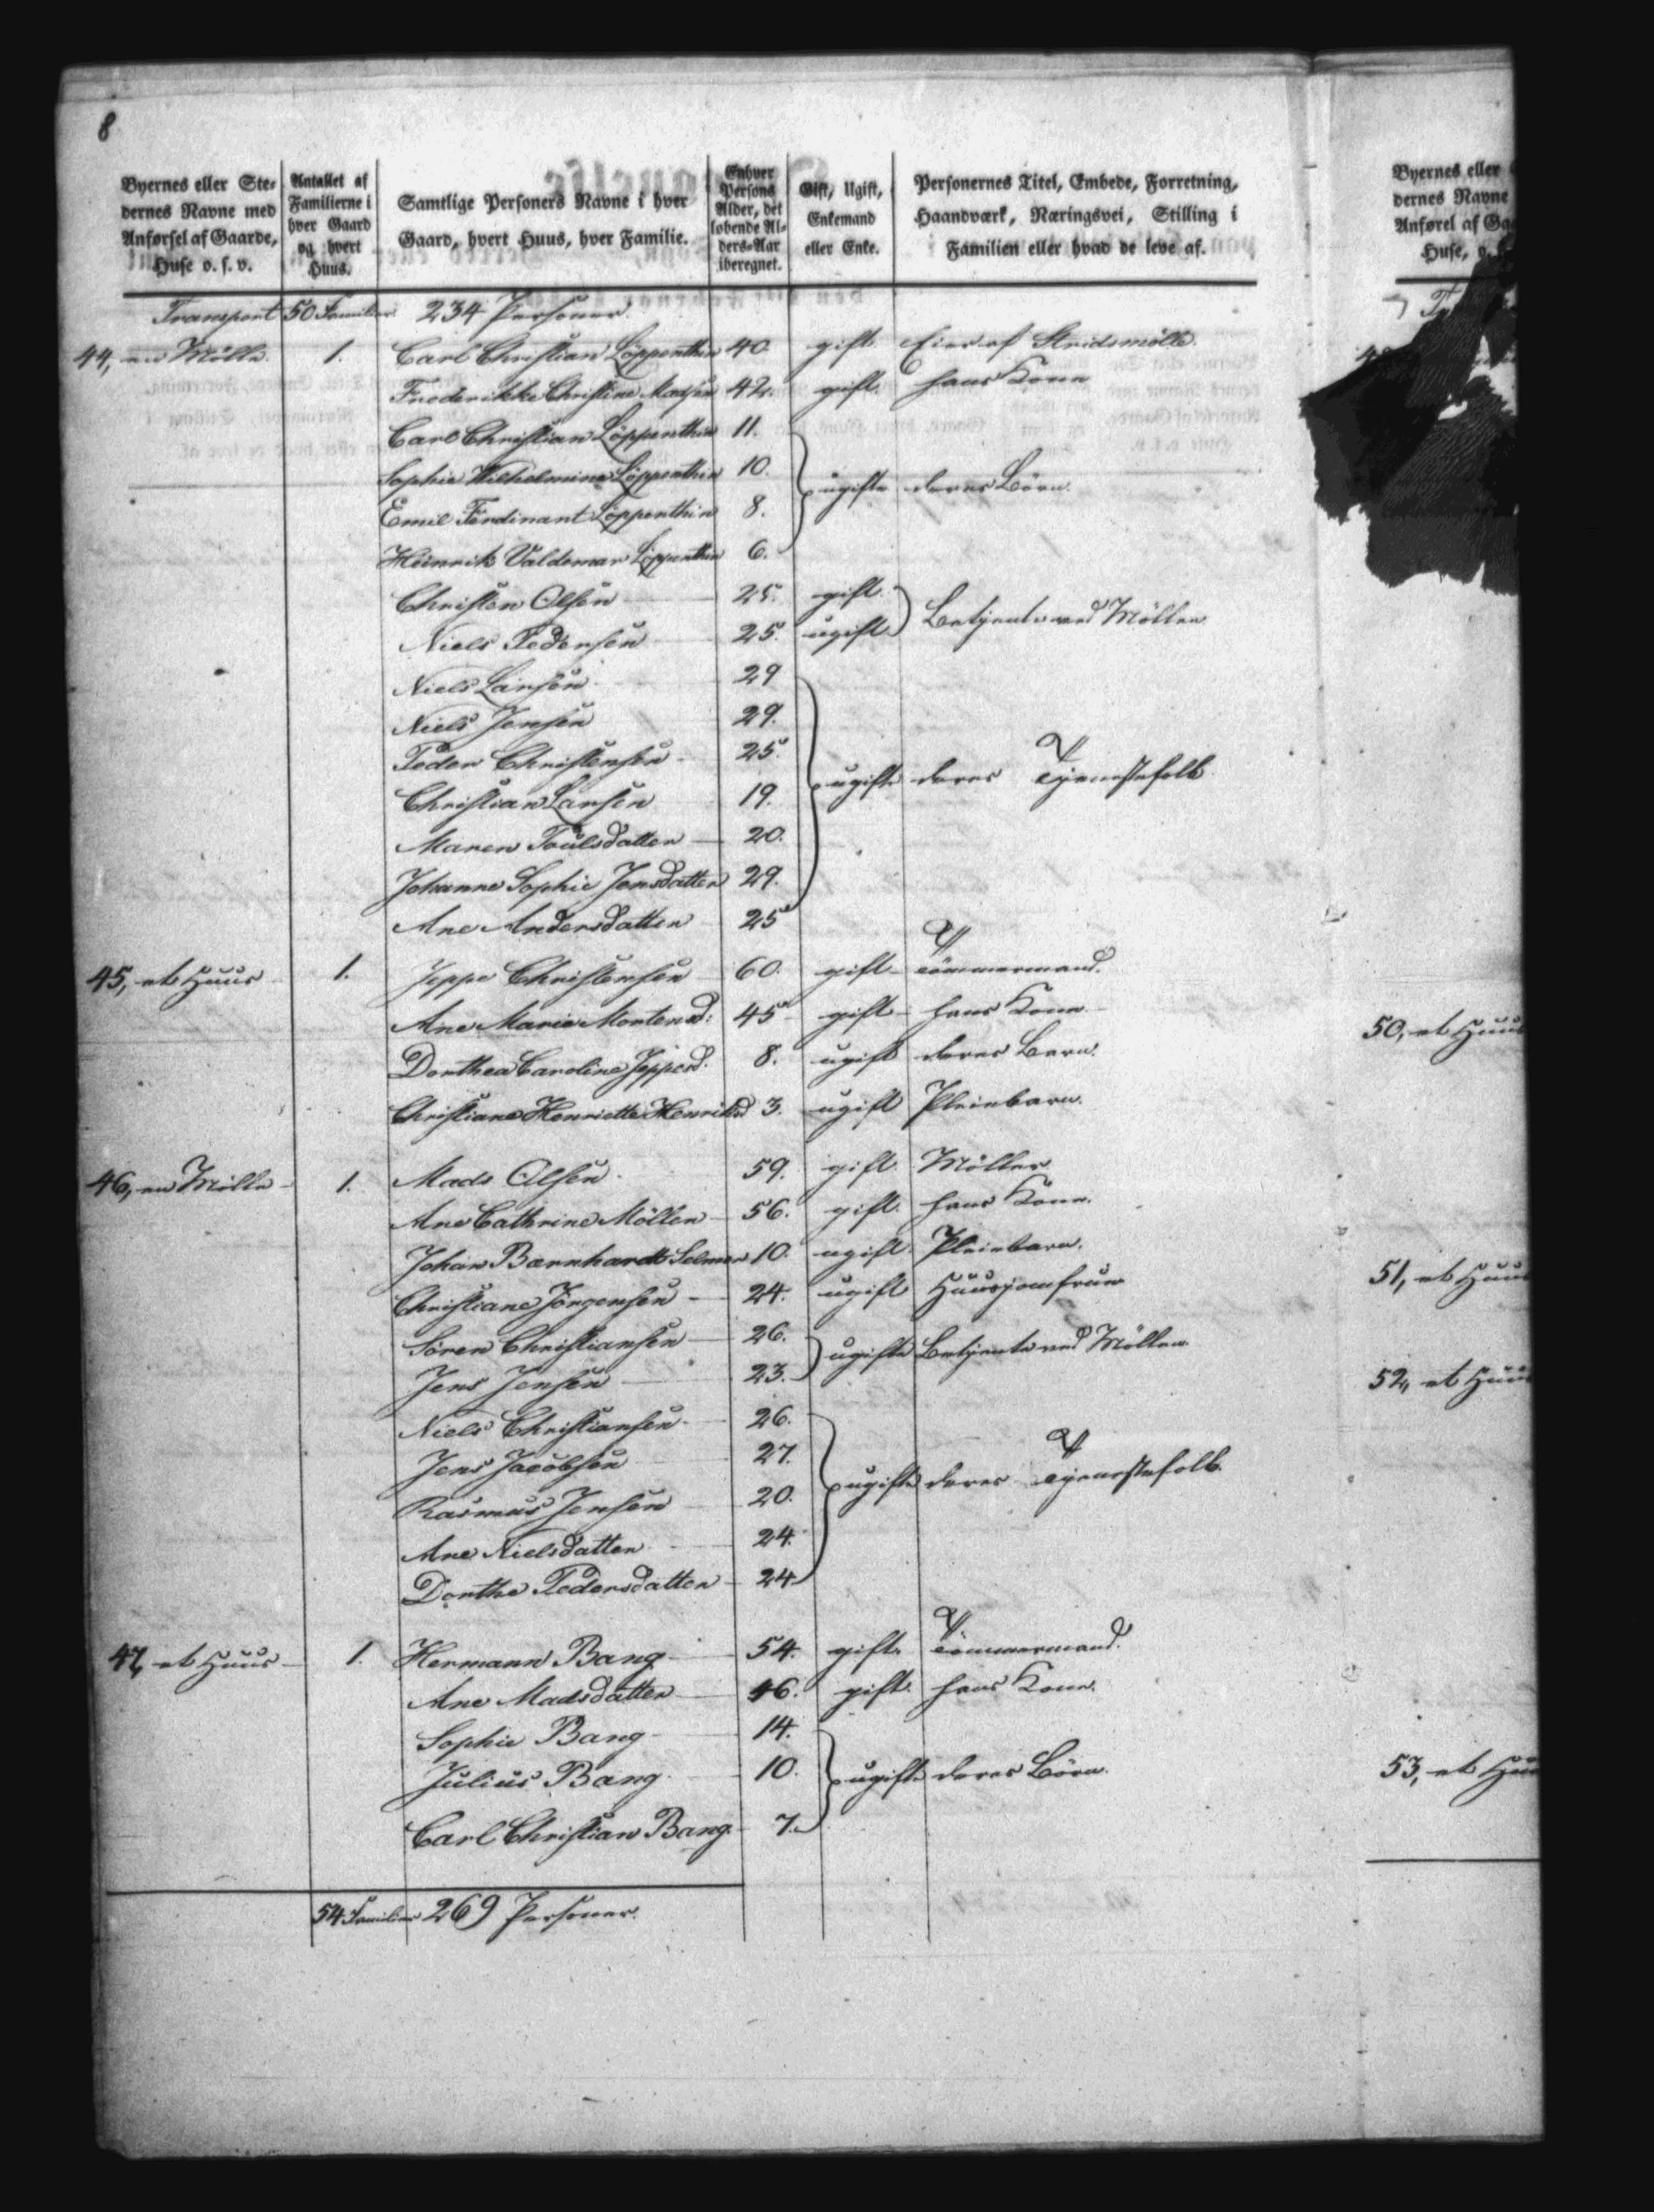 8
Byernes eller Ste-
dernes Navne med
Anførsel af Gaarde,
Huse o. s. v.
Antallet af
Familierne i
hver Gaard
og hvert
Huus.
Samtlige Personers Navne i hver
Gaard, hvert Huus, hver Familie.
Enhver
Persons
Alder, det
løbende Al-
ders-Aar
iberegnet.
Gift, Ugift,
Enkemand
eller Enke.
Personernes Titel, Embede, Forretning,
Haandværk, Næringsvei, Stilling i
Familien eller hvad de leve af.
Transport 50 Familier 234 Personer
44, en Mölle. 1. Carl Christian Löppenthin 40 gift Eier af Stridsmölle.
Frederikke Christine 42. gift hans Kone
Carl Christian Löppenthin 11.
Sophie Wilhelmine Löppenthin 10. ugifte deres Börn.
Emil Ferdinant Löppenthin 8.
Heinrik Valdemar Löppenthin 6.
Christen Olsen 25. gift
Niels Pedersen 25. ugift Betjente ved Möllen
Niels Larsen 29
Niels Jensen 29.
Peder Christensen 25. ugifte deres Tjenestefolk
Christian Larsen 19.
Maren Poulsdatter 20.
Johanne Sophie Jensdatter 29.
Ane Andersdatter 25
45, et Huus 1. Jeppe Christensen 60. gift Tömmermand.
Ane Marie Mortensd: 45 gift hans Kone
Dorthea Caroline Jeppesd. 8. ugift deres Barn.
Christiane Henriette Henriksd 3. ugift Pleiebarn.
46, en Mölle 1. Mads Olsen 59. gift Möller
Ane Cathrine Möller 56. gift. hans Kone.
Johan Bernhardt Selmer 10. ugift Pleiebarn.
Christiane Jörgensen 24. ugift Huusjomfrue
Sören Christiansen 26. ugifte Betjente ved Möllen
Jens Jensen 23.
Niels Christiansen 26.
Jens Jacobsen 27.
Rasmus Jensen 20. ugifte deres Tjenestefolk.
Ane Nielsdatter 24.
Dorthe Pedersdatter 24
47, et Huus 1. Hermann Bang 54. gift Tömmermand.
Ane Madsdatter 46. gift. hans Kone.
Sophie Bang 14.
Julius Bang 10. ugifte deres Börn.
Carl Christian Bang. 7.
54 Familier 269 Personer.
Byernes eller
dernes Navne
Anførel af Ga
Huse, o.
50, et Huus
51, et Huus
52, et Huus
53, et Huus